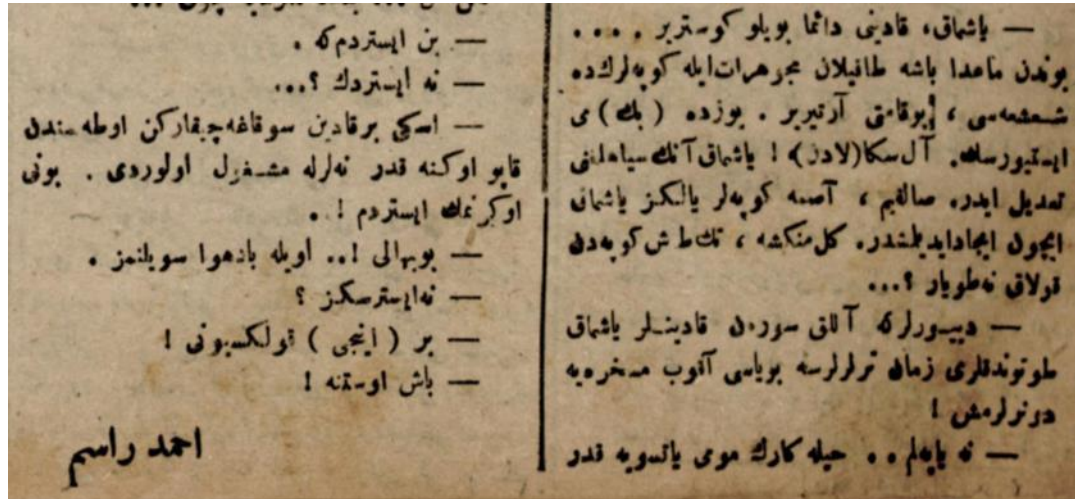 — یاشماق، قادینی دائما بویلو كوستریر . . . .
بوندن ماعدا باشه طاقیلان مجوهرات ایله كوپه‌لرك ده
شعشعه‌سی ، بوقامتی آرتیریر . یوزده ( بك ) می
ایستیورسك. آل سكا (لادن) ! یاشماق آنك سیاهلغنی
تعدیل ایدر. صالقیم ، آصمه كوپه‌لر یالكز یاشماق
ایچون ایجاد ایدیلمشدر. كل منكشه ، تك طاش كوپه‌دن
قولاق نه طویار ؟...
— دییورلركه آللق سورن قادینلر یاشماق
طوتوندقلری زمان ترلرلرسه بویاسی آقوب مسخره‌یه
دونرلرمش !
— نه یاپه‌لم . . حیله كارك مومی یاتسویه قدر
— بن ایستردم كه .
— نه ایستردك ؟...
— اسكی برقادین سوقاغه چیقاركن اوطه‌سندن
قاپو اوكنه قدر نه‌لرله مشغول اولوردی . بونی
اوكرنمك ایستردم ! .
— بوبهالی !.. اویله بادهوا سویلنمز .
— نه ایسترسكز ؟
— بر ( اینجی ) قولكسیونی !
— باش اوستنه !
احمد راسم